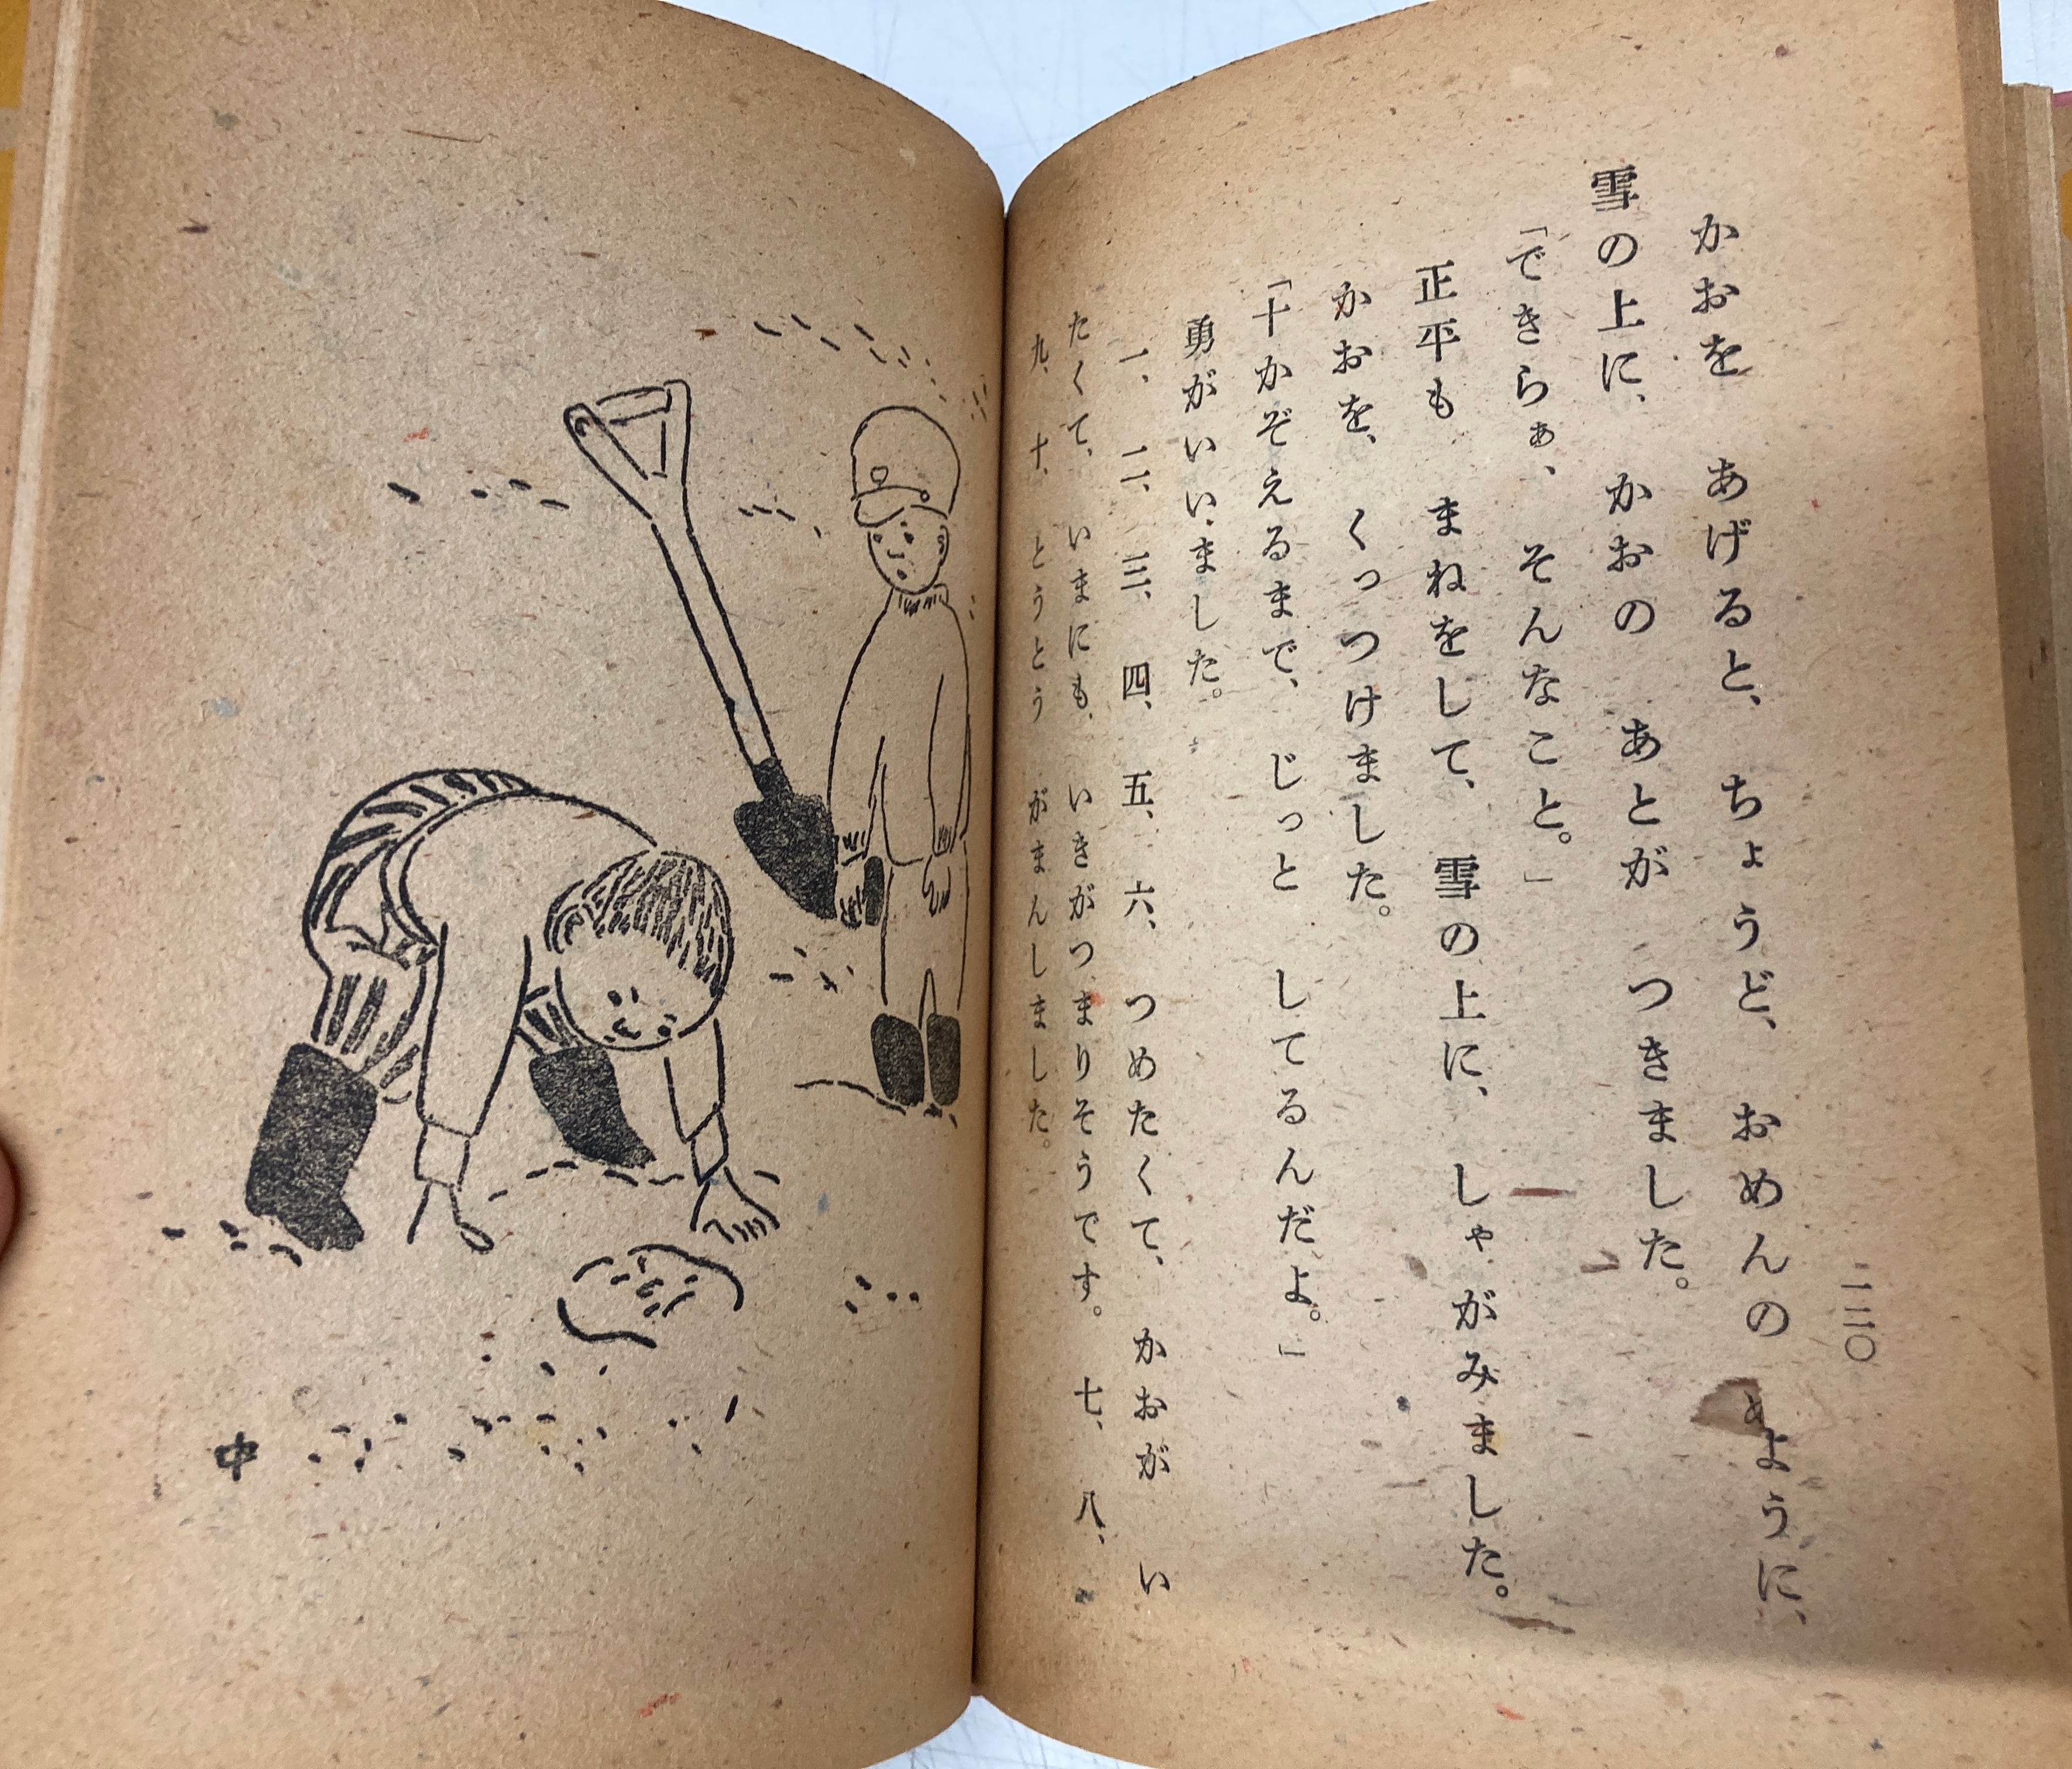 二二〇
かおを　あげると、ちょうど、おめんの　ように、
雪の上に、かおの　あとが　つきました。
「できらぁ、そんなこと。」
正平も　まねをして、雪の上に、しゃがみました。
かおを、くっつけました。
「十かぞえるまで、じっと　してるんだよ。」
勇がいいました。
一、二、三、四、五、六、つめたくて、かおが　い
たくて、いまにも、いきがつまりそうです。七、八、
九、十、とうとう　がまんしました。
中